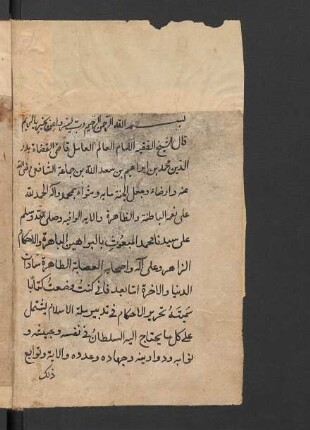 بسم الله الرحمن الرحيم رب يسر واعن بخير يا كريم
قال الشيخ الفقير الامام العالم العامل قاضى القضاة بدر
الدين محمد بن ابراهيم بن سعد الله بن جماعة الشافعى رضى الله
عنه وارضاه وجعل الجنة مابه ومثواه بمحمد وآله الحمد لله
على نعمه الباطنة والظاهرة والايه الوافية وصلى الله وسلم
على سيدنا محمد المبعوث بالبراهين الباهرة والاحكام
الزاهره وعلى آله واصحابه العصابة الطاهرة سادات
الدنيا والاخرة اما بعد فانى كنت وضعت كتابا
سميته تحرير الاحكام فى تدبير ملة الاسلام يشتمل
على كل ما يحتاج اليه السلطان فى نفسه وجيشه و
نوابه ودواوينه وجهاده وعدده والآية وتوابع
ذلك